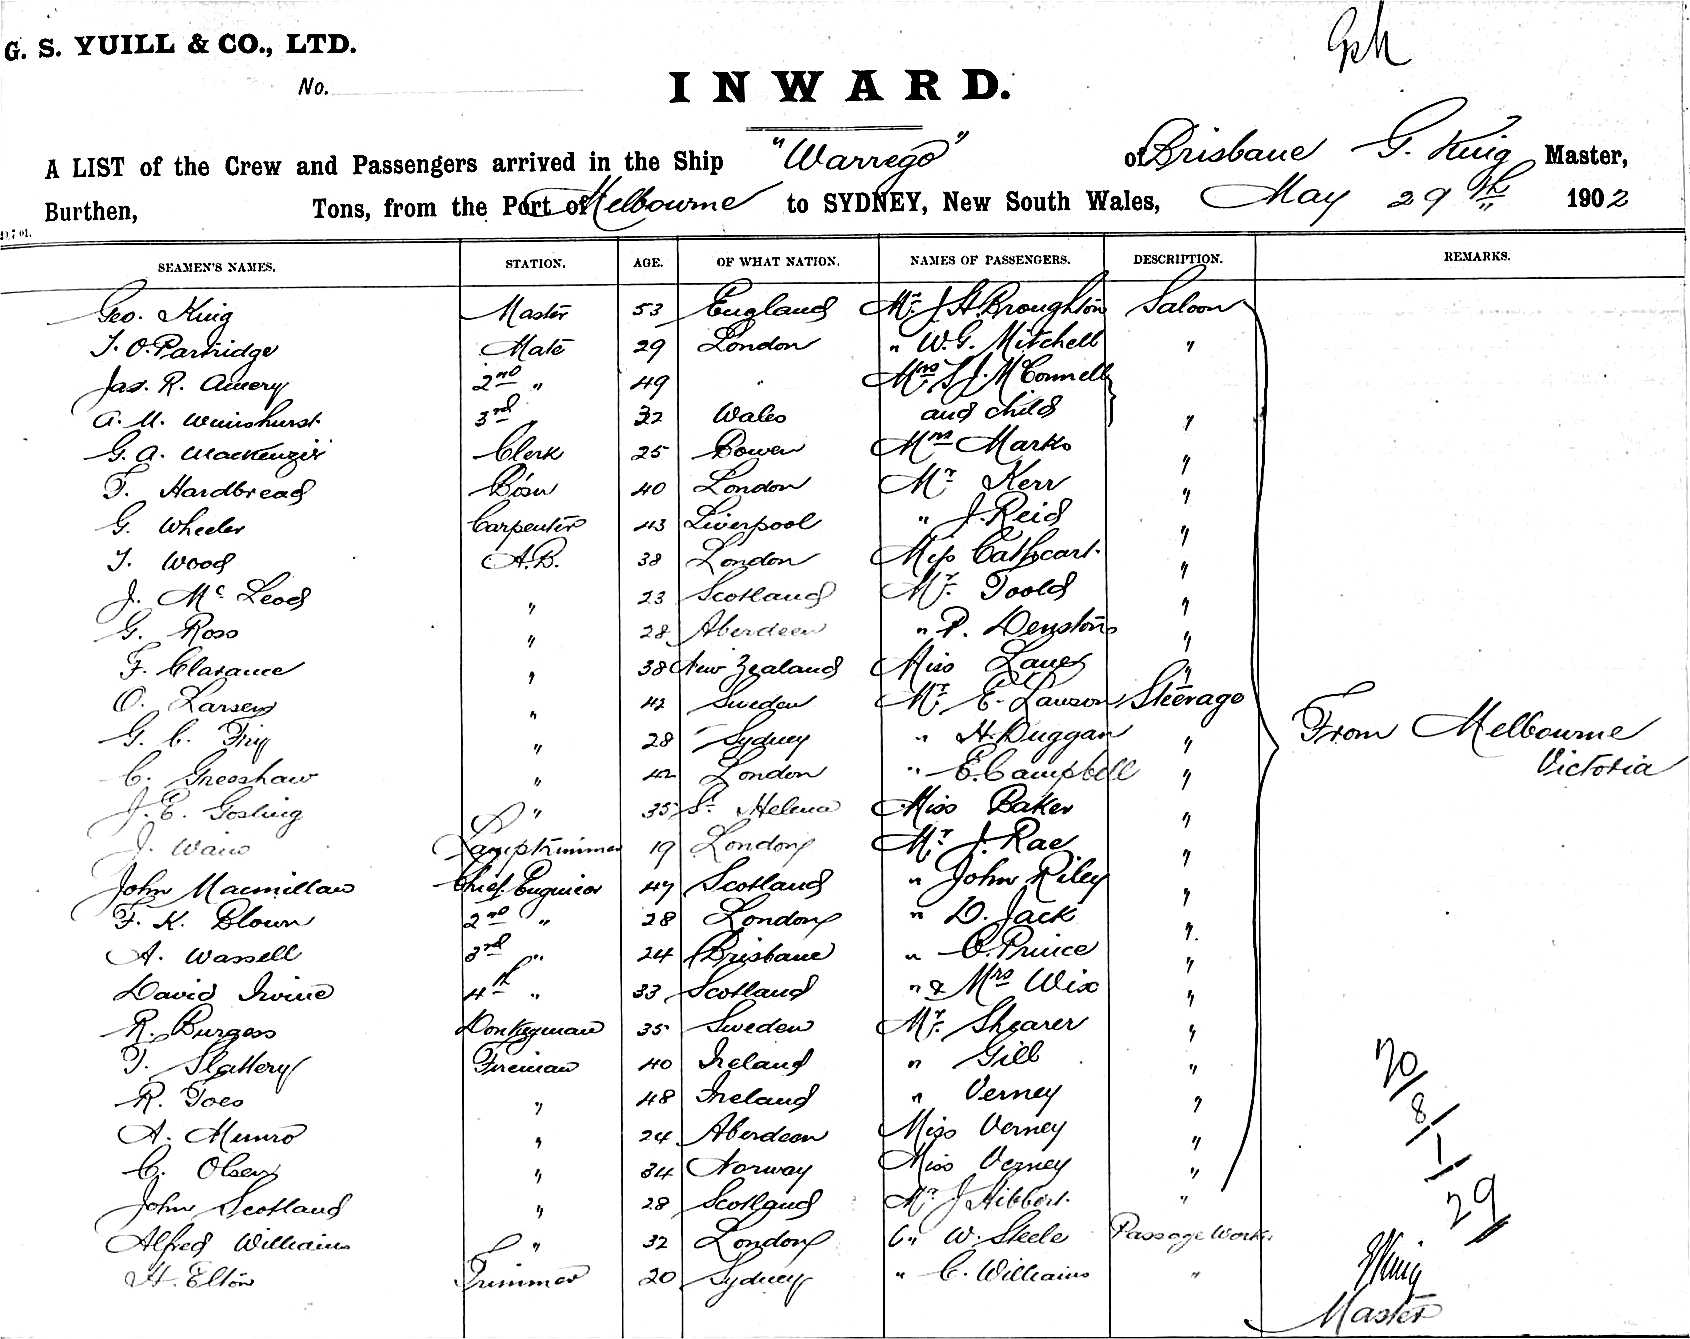 G. S. YUILL & CO., LTD.
No.
INWARD.
A LIST of the Crew and Passengers arrived in the Ship "Warrego" of Brisbane G. King Master,
Burthen, Tons, from the Port of Melbourne to SYDNEY, New South Wales, May 29th 1902
SEAMEN'S NAMES. STATION. AGE. OF WHAT NATION. NAMES OF PASSENGERS. DESCRIPTION. REMARKS.
Geo. King Master 53 England Mr. J. H. Broughton Saloon
T. O. Partridge Mate 29 London " W. G. Mitchell "
Jas. R. Amery 2nd " 49 " Mrs S. J. McConnell
A. M. Wimshurst 3rd " 32 Wales and child "
G. A. Mackenzie Clerk 25 Bowen Mrs Marks "
F. Hardbread Bosn 40 London Mr Kerr "
G. Wheeler Carpenter 43 Liverpool " J. Reid "
T. Wood A.B. 38 London Miss Cathcart "
J. McLeod " 23 Scotland Mr. Toold "
G. Ross " 28 Aberdeen " P. Denston "
F. Clarance " 38 New Zealand Miss Laney "
O. Larsen " 42 Sweden Mr. E. Lawson Steerage
G. C. Fry " 28 Sydney " H. Duggan "
C. Greeshaw " 42 London " E. Campbell "
J. E. Gosling " 35 St. Helena Miss Baker "
J. Lamptrimmer 19 London Mr J. Rae "
John Macmillan Chief Engineer 47 Scotland " John Riley "
F. K. Blown 2nd " 28 London " D. Jack "
A. Wassell 3rd " 24 Brisbane " C. Prince "
David Irvine 4th " 33 Scotland " & Mrs Wix "
R. Burgess Donkeyman 35 Sweden Mr. Shearer "
T. Slattery Fireman 40 Ireland " Gill "
R. Toes " 48 Ireland " Verney "
A. Munro " 24 Aberdeen Miss Verney "
C. Olsen " 34 Norway Miss Verney "
John Scotland " 28 Scotland Mr J. Hibbert "
Alfred Williams " 32 London " W. Steele Passage Work
H. Elton Trimmer 20 Sydney " C. Williams "
From Melbourne
Victoria
70/
8/
1/
29/
GKing
Master